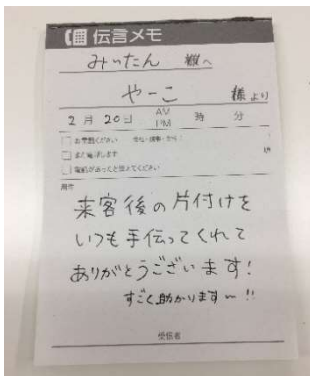 伝言メモ
みいたん 様へ
やーこ 様より
2月20日 AM PM 時 分
お電話ください
また電話します
電話があったと伝えてください
用件
来客後の片付けを
いつも手伝ってくれて
ありがとうございます!
すごく助かります〜!!
受信者